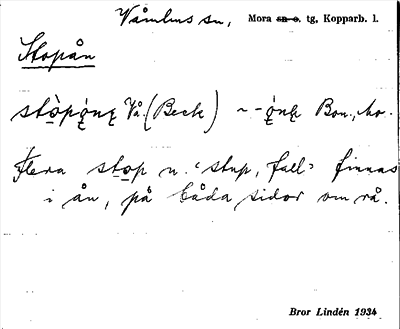 Våmhus sn, Mora sn o. tg, Kopparb. l.
Stopån
stòpǫ́nę Vå. (Beck) ~ - ǫ́nę Bon., ho.
Flera stop n. ‘stup, fall’ finnas
i ån, på båda sidor om rå.
Bror Lindén 1934